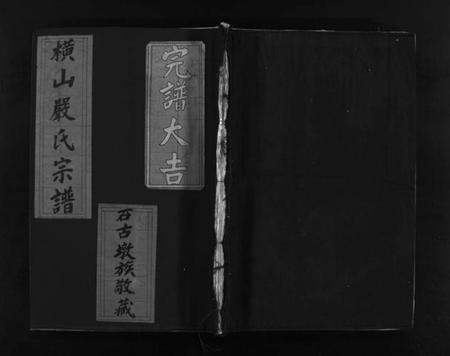 完譜大吉
橫山嚴氏宗譜
石古墩族敬藏